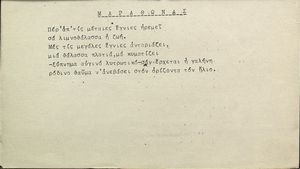 ΜΑΡΑΘΩΝΑΣ
Πέρ' ἀπ' τίς μάταιες ἔγνιες ἠρεμεῖ
σά λιμνοθάλασσα ἡ ζωή.
Μές τίς μεγάλες ἔγνιες ἀντοριάζει,
μιά θάλασσα πλατιά, μά κυματίζει
-ξύπνημα αὐτινό λυτρωτικό- σάν ἔρχεται ἡ γαλήνη
ρόδινο θαῦμα ν' ἀνεβάσει στόν ὁρίζοντα τόν ἥλιο.